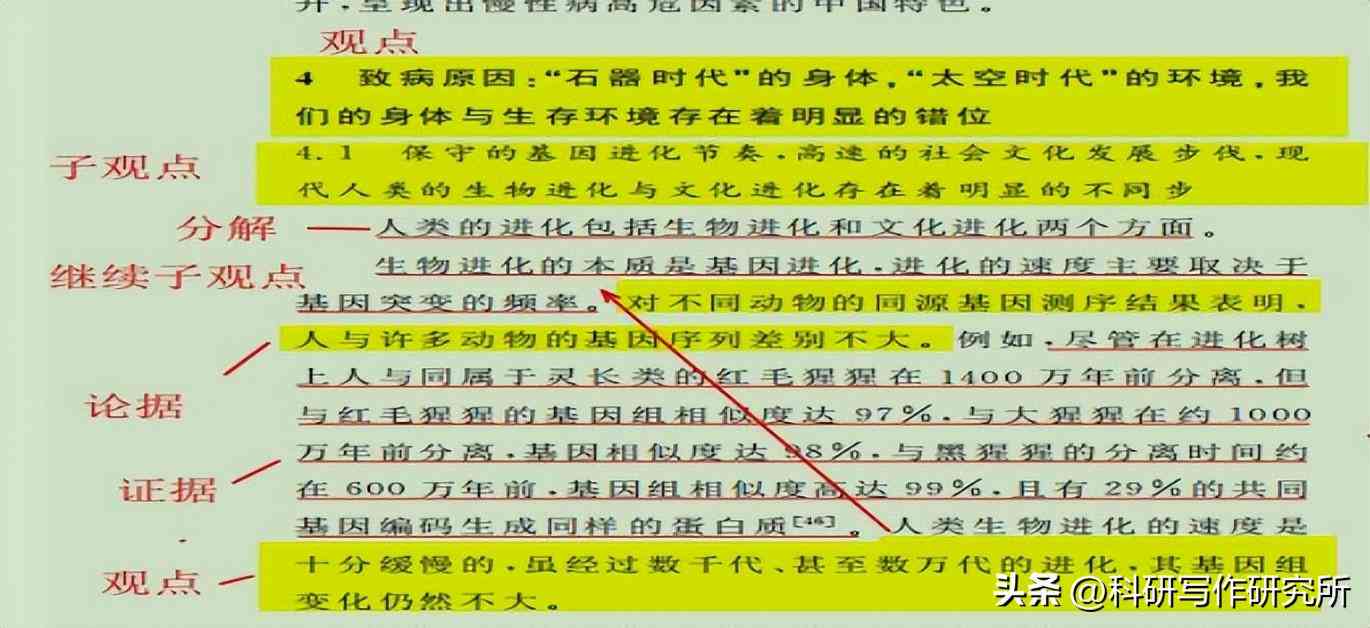 升，呈现出慢性病高危因素的中国特色。
观点
4 致病原因：“石器时代”的身体，“太空时代”的环境，我
们的身体与生存环境存在着明显的错位
子观点
4.1 保守的基因进化节奏，高速的社会文化发展步伐，现
代人类的生物进化与文化进化存在着明显的不同步
分解
人类的进化包括生物进化和文化进化两个方面。
继续子观点
生物进化的本质是基因进化，进化的速度主要取决于
基因突变的频率。对不同动物的同源基因测序结果表明，
人与许多动物的基因序列差别不大。例如，尽管在进化树
上人与同属于灵长类的红毛猩猩在1400万年前分离，但
论据
与红毛猩猩的基因组相似度达97%，与大猩猩在约1000
万年前分离，基因相似度达98%，与黑猩猩的分离时间约
证据
在600万年前，基因组相似度高达99%，且有29%的共同
基因编码生成同样的蛋白质[46]。人类生物进化的速度是
观点
十分缓慢的，虽经过数千代、甚至数万代的进化，其基因组
变化仍然不大。
头条@科研写作研究所